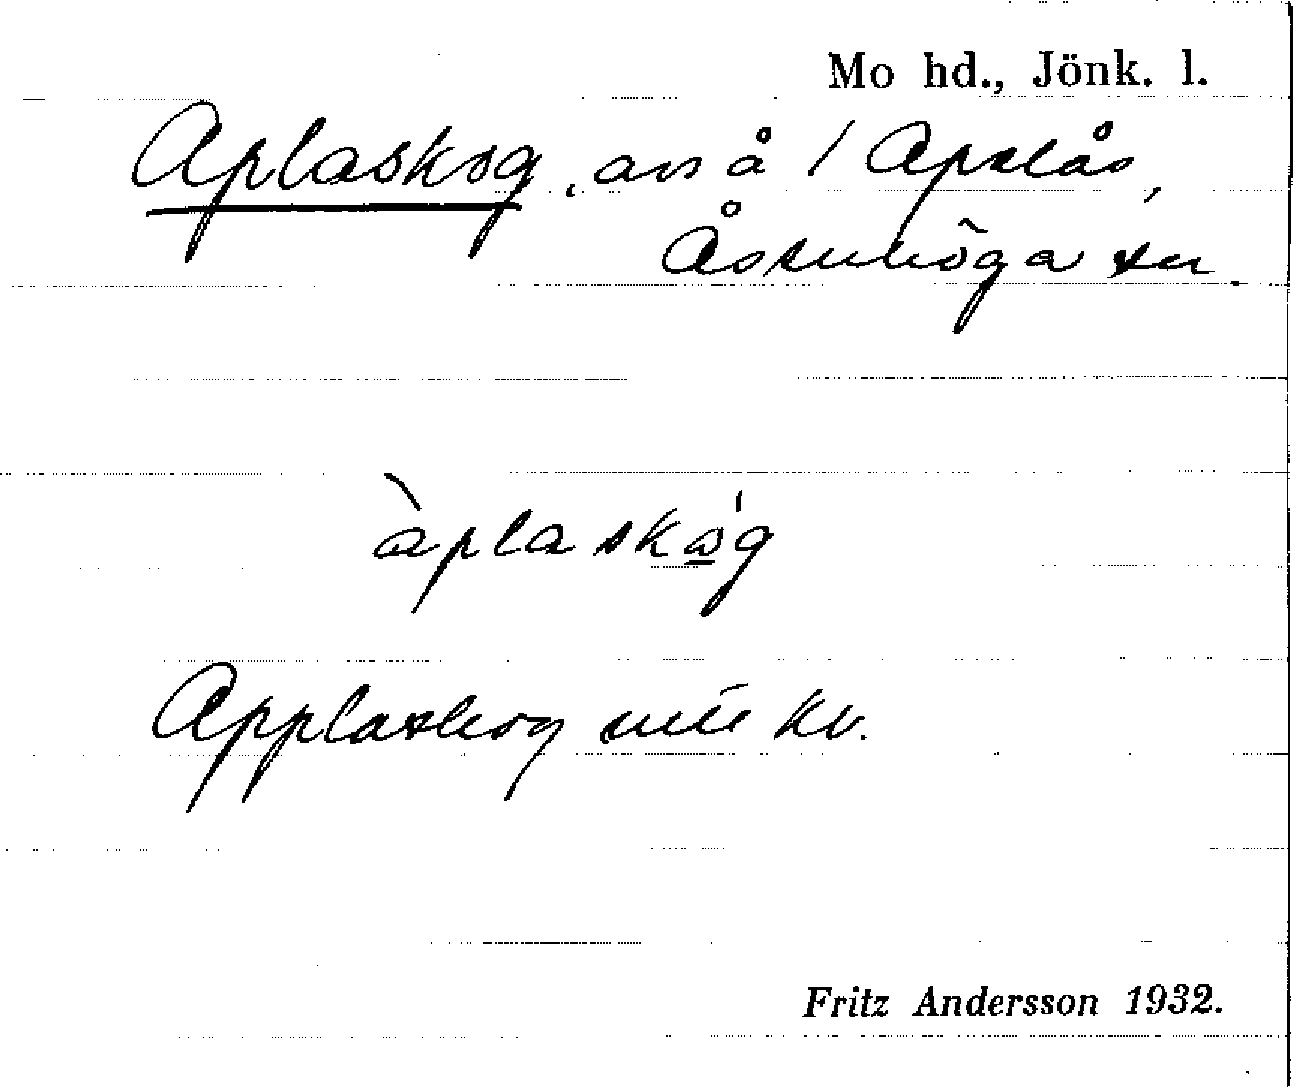 Mo hd., Jönk. l.
Aplaskog, avs å 1 Apelås,
Åsenhöga sn
àplaskog
Applaskog mtl kv.
Fritz Andersson 1932.